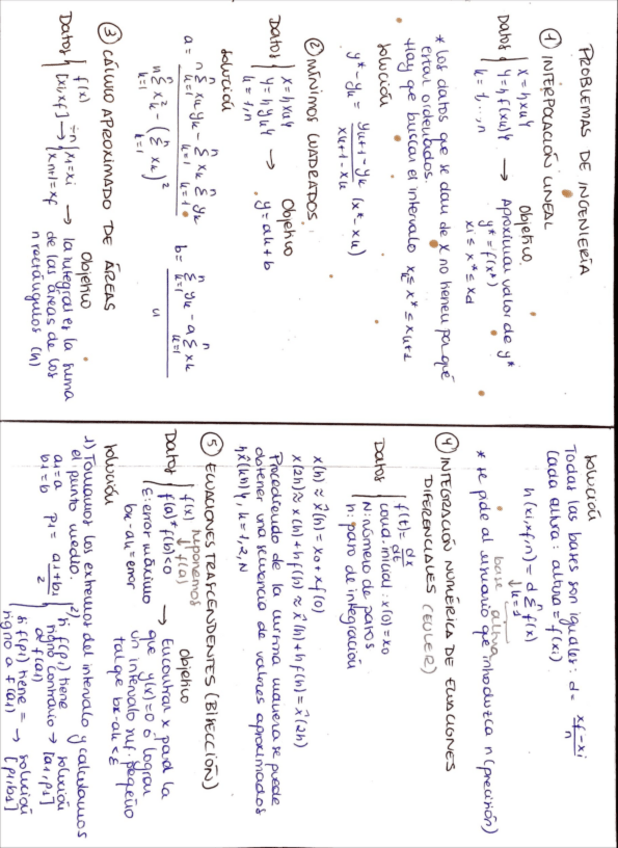 PROBLEMAS DE INGENIERÍA
① INTERPOLACIÓN LINEAL
Datos { x = {xk}
y = {f(xk)}
k = 1,...,n
→
Objetivo
Aproximar valor de y*
y* = f(x*)
xi ≤ x* ≤ xd
* Los datos que se dan de x no tienen por qué
estar ordenados.
Hay que buscar el intervalo xk ≤ x* ≤ xk+1
solución
y* - yk = (yk+1 - yk)/(xk+1 - xk) (x* - xk)
② MÍNIMOS CUADRADOS
Datos { x = {xk}
y = {yk}
k = 1,n
→
Objetivo
y = ax + b
solución
a = (n Σ xk yk - Σ xk Σ yk)/(n Σ xk² - (Σ xk)²)
b = (Σ yk - a Σ xk)/n
③ CÁLCULO APROXIMADO DE ÁREAS
Datos { f(x)
[xi,xf] ÷n → { x1 = xi
xn+1 = xf
→
Objetivo
la integral es la suma
de las áreas de los
n rectángulos (n)
solución
Todas las bases son iguales: d = (xf - xi)/n
Cada altura: altura = f(xi)
base altura
h(xi,xf,n) = d Σ f(x)
k=1
* se pide al usuario que introduzca n (precisión)
④ INTEGRACIÓN NUMÉRICA DE ECUACIONES
DIFERENCIALES (EULER)
Datos { f(t) = dx/dt
cond. inicial: x(0) = x0
N: número de pasos
h: paso de integración
x(h) ≈ x̂(h) = x0 + xf(0)
x(2h) ≈ x(h) + hf(h) ≈ x̂(h) + hf(h) = x̂(2h)
Procediendo de la misma manera se puede
obtener una secuencia de valores aproximados
{x̂(kh)}, k = 1,2,N
⑤ ECUACIONES TRASCENDENTES (BISECCIÓN)
Datos { f(x) suponemos ↓ f(a)
f(a)*f(b)<0
E: error máximo
bk-ak = error
→
Objetivo
Encontrar x para la
que y(x)=0 ó lograr
un intervalo suf. pequeño
tal que bk-ak<ε
solución
1) Tomamos los extremos del intervalo y calculamos
el punto medio.
a1=a
b1=b
p1 = (a1+b1)/2
2) { si f(p1) tiene
signo contrario →
a f(a1)
solución
[a1,p1]
si f(p1) tiene =
signo a f(a1)
→ solución
[p1,b1]